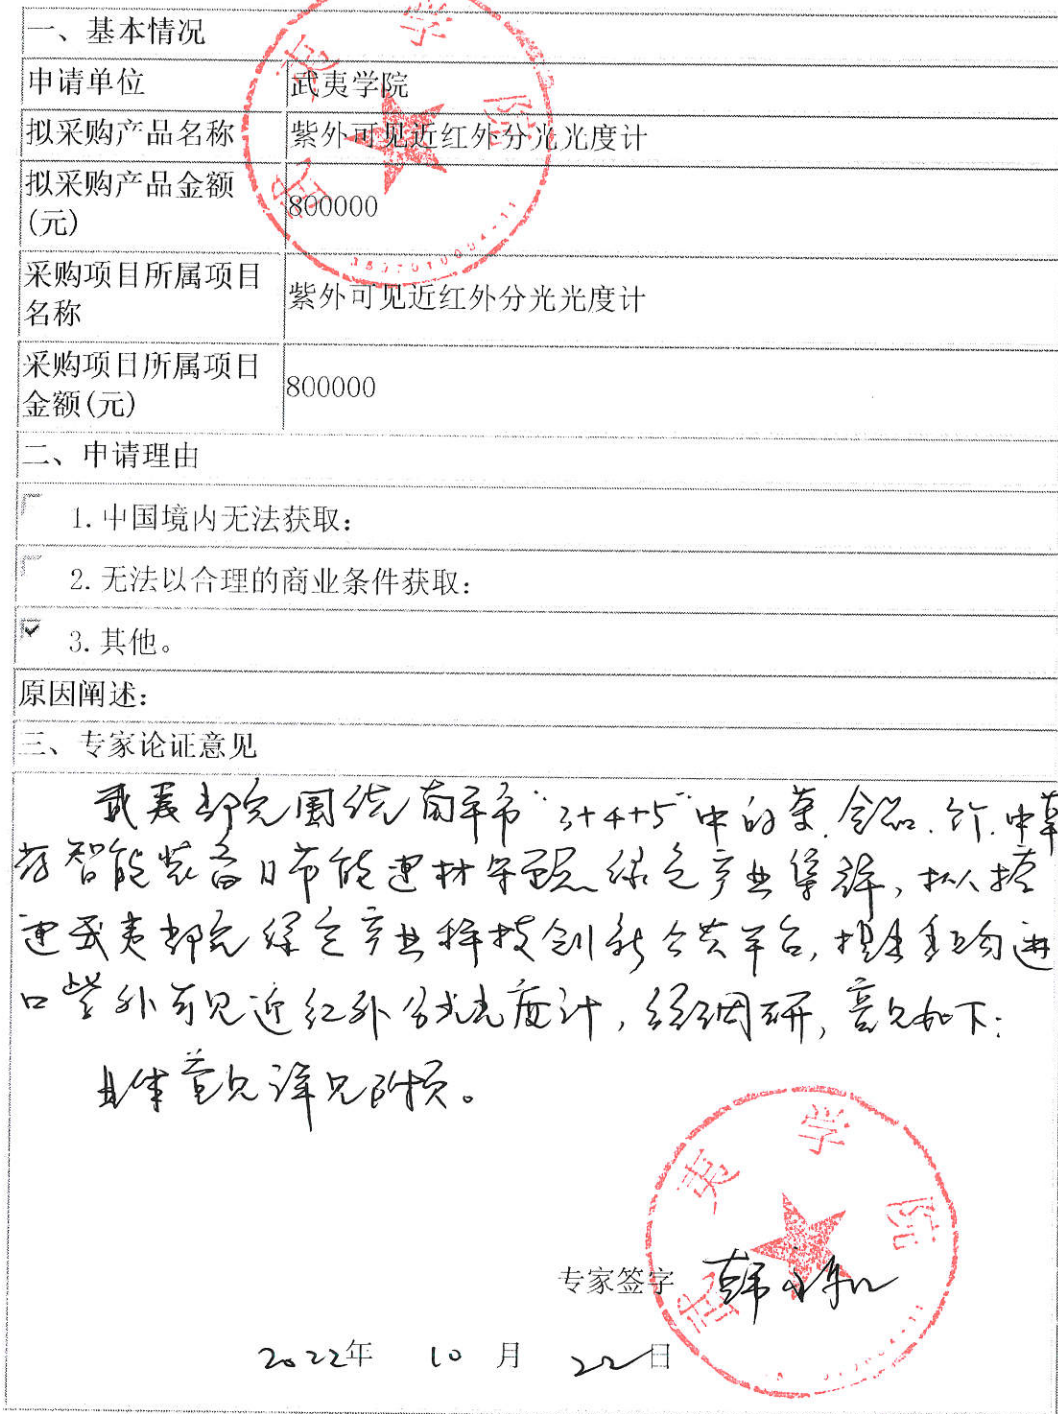 一、基本情况
申请单位
武夷学院
拟采购产品名称
紫外可见近红外分光光度计
拟采购产品金额
(元)
800000
采购项目所属项目
名称
紫外可见近红外分光光度计
采购项目所属项目
金额(元)
800000
二、申请理由
1.中国境内无法获取：
2.无法以合理的商业条件获取：
3.其他。
原因阐述：
三、专家论证意见
武夷学院围绕南平市“3+4+5”中的茶、食品、竹、中草
药智能装备日节能建材等重点绿色产业集群，拟搭
建武夷学院绿色产业科技创新公共平台，提出采购进
口紫外可见近红外分光光度计，经调研，意见如下：
具体意见详见附页。
武夷学院
专家签字
2022年 10 月 22日
武夷学院